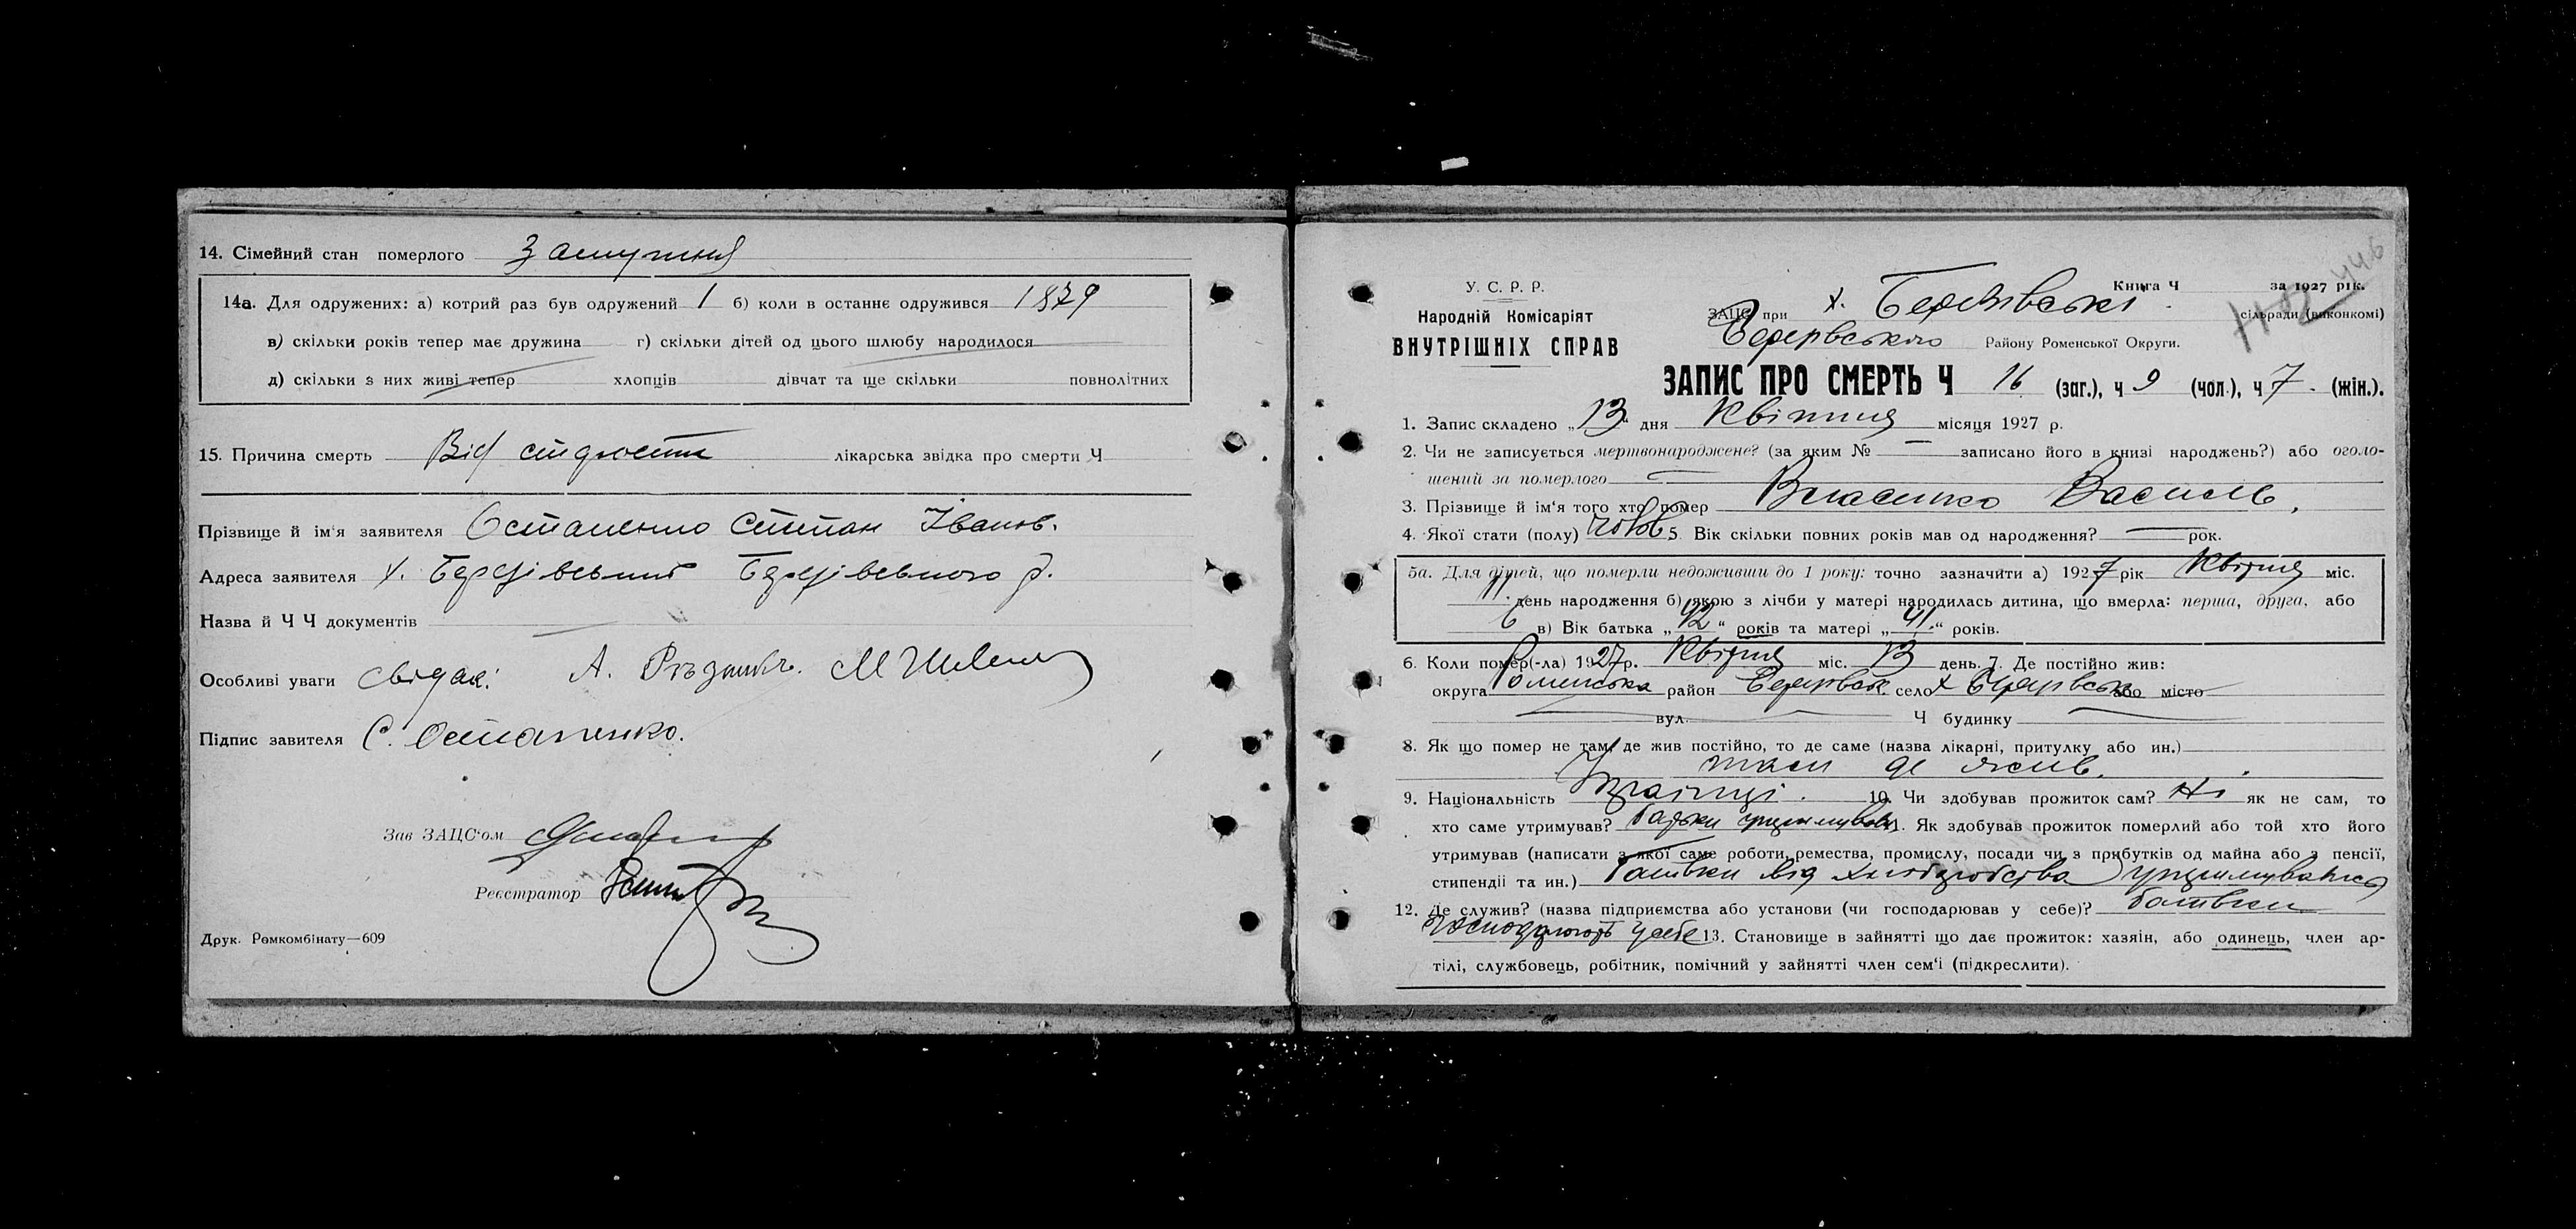 14. Сімейний стан померлого Замужня
14а. Для одружених: а) котрий раз був одружений 1 б) коли в останнє одружився 1879
в) скільки років тепер має дружина г) скільки дітей од цього шлюбу народилося
д) скільки з них живі тепер хлопців дівчат та ще скільки повнолітних
15. Причина смерть Від старости лікарська звідка про смерти Ч
Прізвище й ім'я заявителя Остапенко Степан Іванов.
Адреса заявителя х. Березівський Березівського р.
Назва й Ч Ч документів
Особливі уваги Свідак: А. М
Підпис завителя С. Остапенко.
Зав ЗАЦС'ом
Реєстратор
Друк. Ромкомбінату—609
446
У. С. Р. Р.
Народній Комісаріят
ВНУТРІШНІХ СПРАВ
Книга Ч за 1927 рік.
ЗАЦС при х. сільради (виконкомі)
Району Роменської Округи.
ЗАПИС ПРО СМЕРТЬ Ч 16 (заг.), ч 9 (чол.), ч 7 (жін.).
1. Запис складено „13" дня Квітня місяця 1927 р.
2. Чи не записується мертвонароджене? (за яким № — записано його в книзі народжень?) або оголо-
шений за померлого
3. Прізвище й ім'я того хто помер Власенко Василь.
4. Якої стати (полу) чолов 5. Вік скільки повних років мав од народження? — рок.
5а. Для дітей, що померли недоживши до 1 року: точно зазначити а) 1927 рік Квітня міс.
11 день народження б) якою з лічби у матері народилась дитина, що вмерла: перша, друга, або
6 в) Вік батька „42" років та матері „41" років.
6. Коли помер(-ла) 1927р. Квітня міс. 13 день. 7. Де постійно жив:
округа Роменська район село х або місто
вул. Ч будинку
8. Як що помер не там, де жив постійно, то де саме (назва лікарні, притулку або ин.)
там де жив.
9. Національність 10. Чи здобував прожиток сам? Ні як не сам, то
хто саме утримував? батьки утримували. Як здобував прожиток померлий або той хто його
утримував (написати з якої саме роботи, ремества, промислу, посади чи з прибутків од майна або з пенсії,
стипендії та ин.) батьки від хліборобства утримувались
12. Де служив? (назва підприємства або установи (чи господарював у себе)? батьки
господарюють у себе 13. Становище в зайнятті що дає прожиток: хазяїн, або одинець, член ар-
тілі, службовець, робітник, помічний у зайнятті член сем'ї (підкреслити).